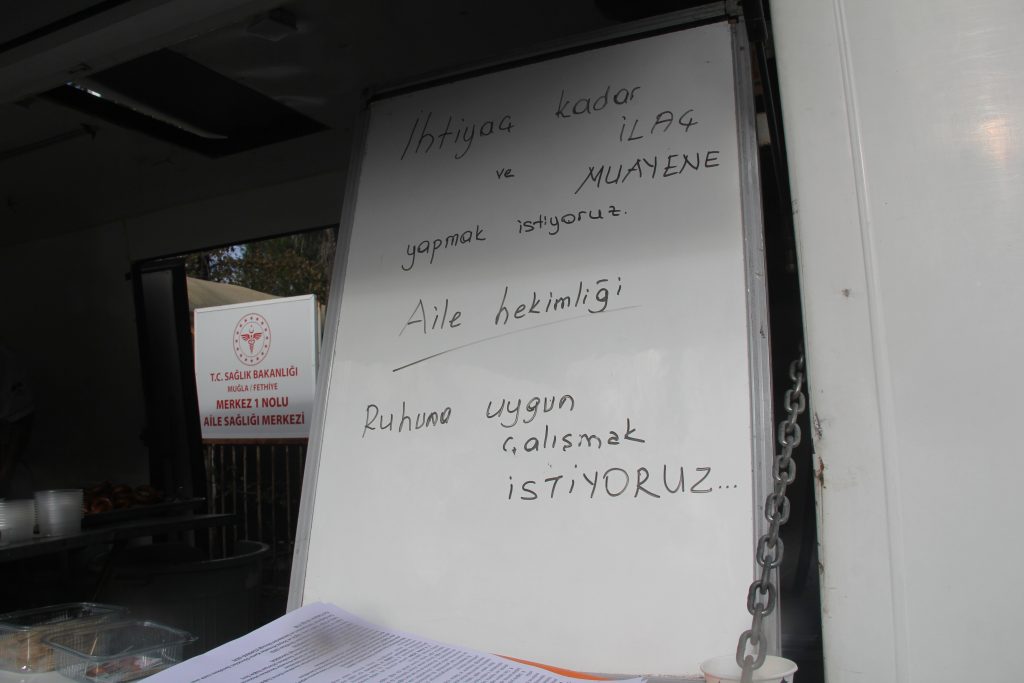 İhtiyaç kadar
İLAÇ
ve MUAYENE
yapmak istiyoruz.
Aile hekimliği
Ruhuna uygun
çalışmak
İSTİYORUZ...
T.C. SAĞLIK BAKANLIĞI
MUĞLA / FETHİYE
MERKEZ 1 NOLU
AİLE SAĞLIĞI MERKEZİ